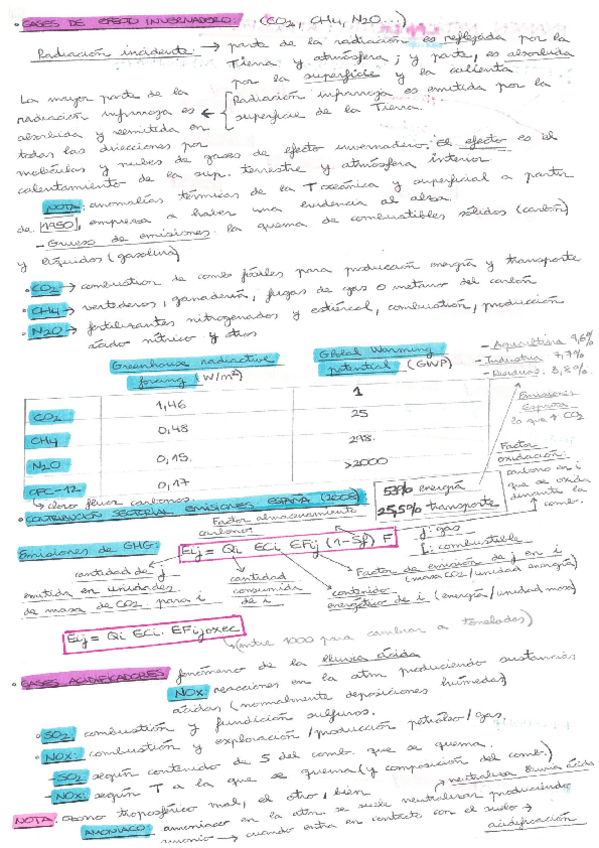 · GASES DE EFECTO INVERNADERO: (CO2, CH4, N2O...)
Radiación incidente: → parte de la radiación es reflejada por la
Tierra y atmósfera; y parte, es absorbida
por la superficie y la calienta
La mayor parte de la
radiación infrarroja es ← Radiación infrarroja es emitida por la
absorbida y reemitida en superficie de la Tierra
todas las direcciones por
moléculas y nubes de gases de efecto invernadero. El efecto es el
calentamiento de la sup. terrestre y atmósfera inferior
NOTA: anomalías térmicas de la T oceánica y superficial a partir
de 1950, empresa a haber una evidencia al alza.
- Grueso de emisiones: la quema de combustibles sólidos (carbón)
y líquidos (gasolina)
· CO2 → combustion de comb fósiles para producción energía y transporte
· CH4 → vertederos, ganadería, fugas de gas o metano del carbón
· N2O → fertilizantes nitrogenados y estiércol, combustión, producción
ácido nítrico y otros
Greenhouse radiactive forcing (W/m²)
Global Warming potential (GWP)
- Agricultura 9,6%
- Industria 7,7%
- Residuos 3,8%
CO2 1,46 1
CH4 0,48 25
N2O 0,15 298
CFC-12 0,17 >2000
↳ cloro fluor carbonos.
Emisiones
España
lo que + CO2
Factor
oxidación:
carbono en i
que se oxida
durante la
comb.
53% energía
25,5% transporte
· CONTRIBUCIÓN SECTORIAL EMISIONES ESPAÑA (2008)
Factor almacenamiento
carbono
Emisiones de GHG: Eij = Qi ECi EFij (1-Sf) F
j: gas
i: combustible
cantidad de j
emitida en unidades
de masa de CO2 para i
cantidad
consumida
de i
contenido
energético de i (energía/unidad masa)
Factor de emisión de j en i
(masa CO2/unidad energía)
Eij = Qi ECi. EFijoxec
↳ (entre 1000 para cambiar a toneladas)
· GASES ACIDIFICADORES fenómeno de la lluvia ácida
NOx: reacciones en la atm produciendo sustancias
ácidas (normalmente deposiciones húmedas)
· SO2: combustión y fundición sulfuros.
· NOx: combustión y exploración/producción petróleo/gas.
- SO2 según contenido de S del comb. que se quema.
- NOx: según T a la que se quema (y composición del comb.)
NOTA: Ozono troposférico mal, el otro, bien
→ neutraliza lluvia ácida
AMONIACO: amoniaco en la atm se suele neutralizar produciendo
amonio → cuando entra en contacto con el suelo →
acidificación